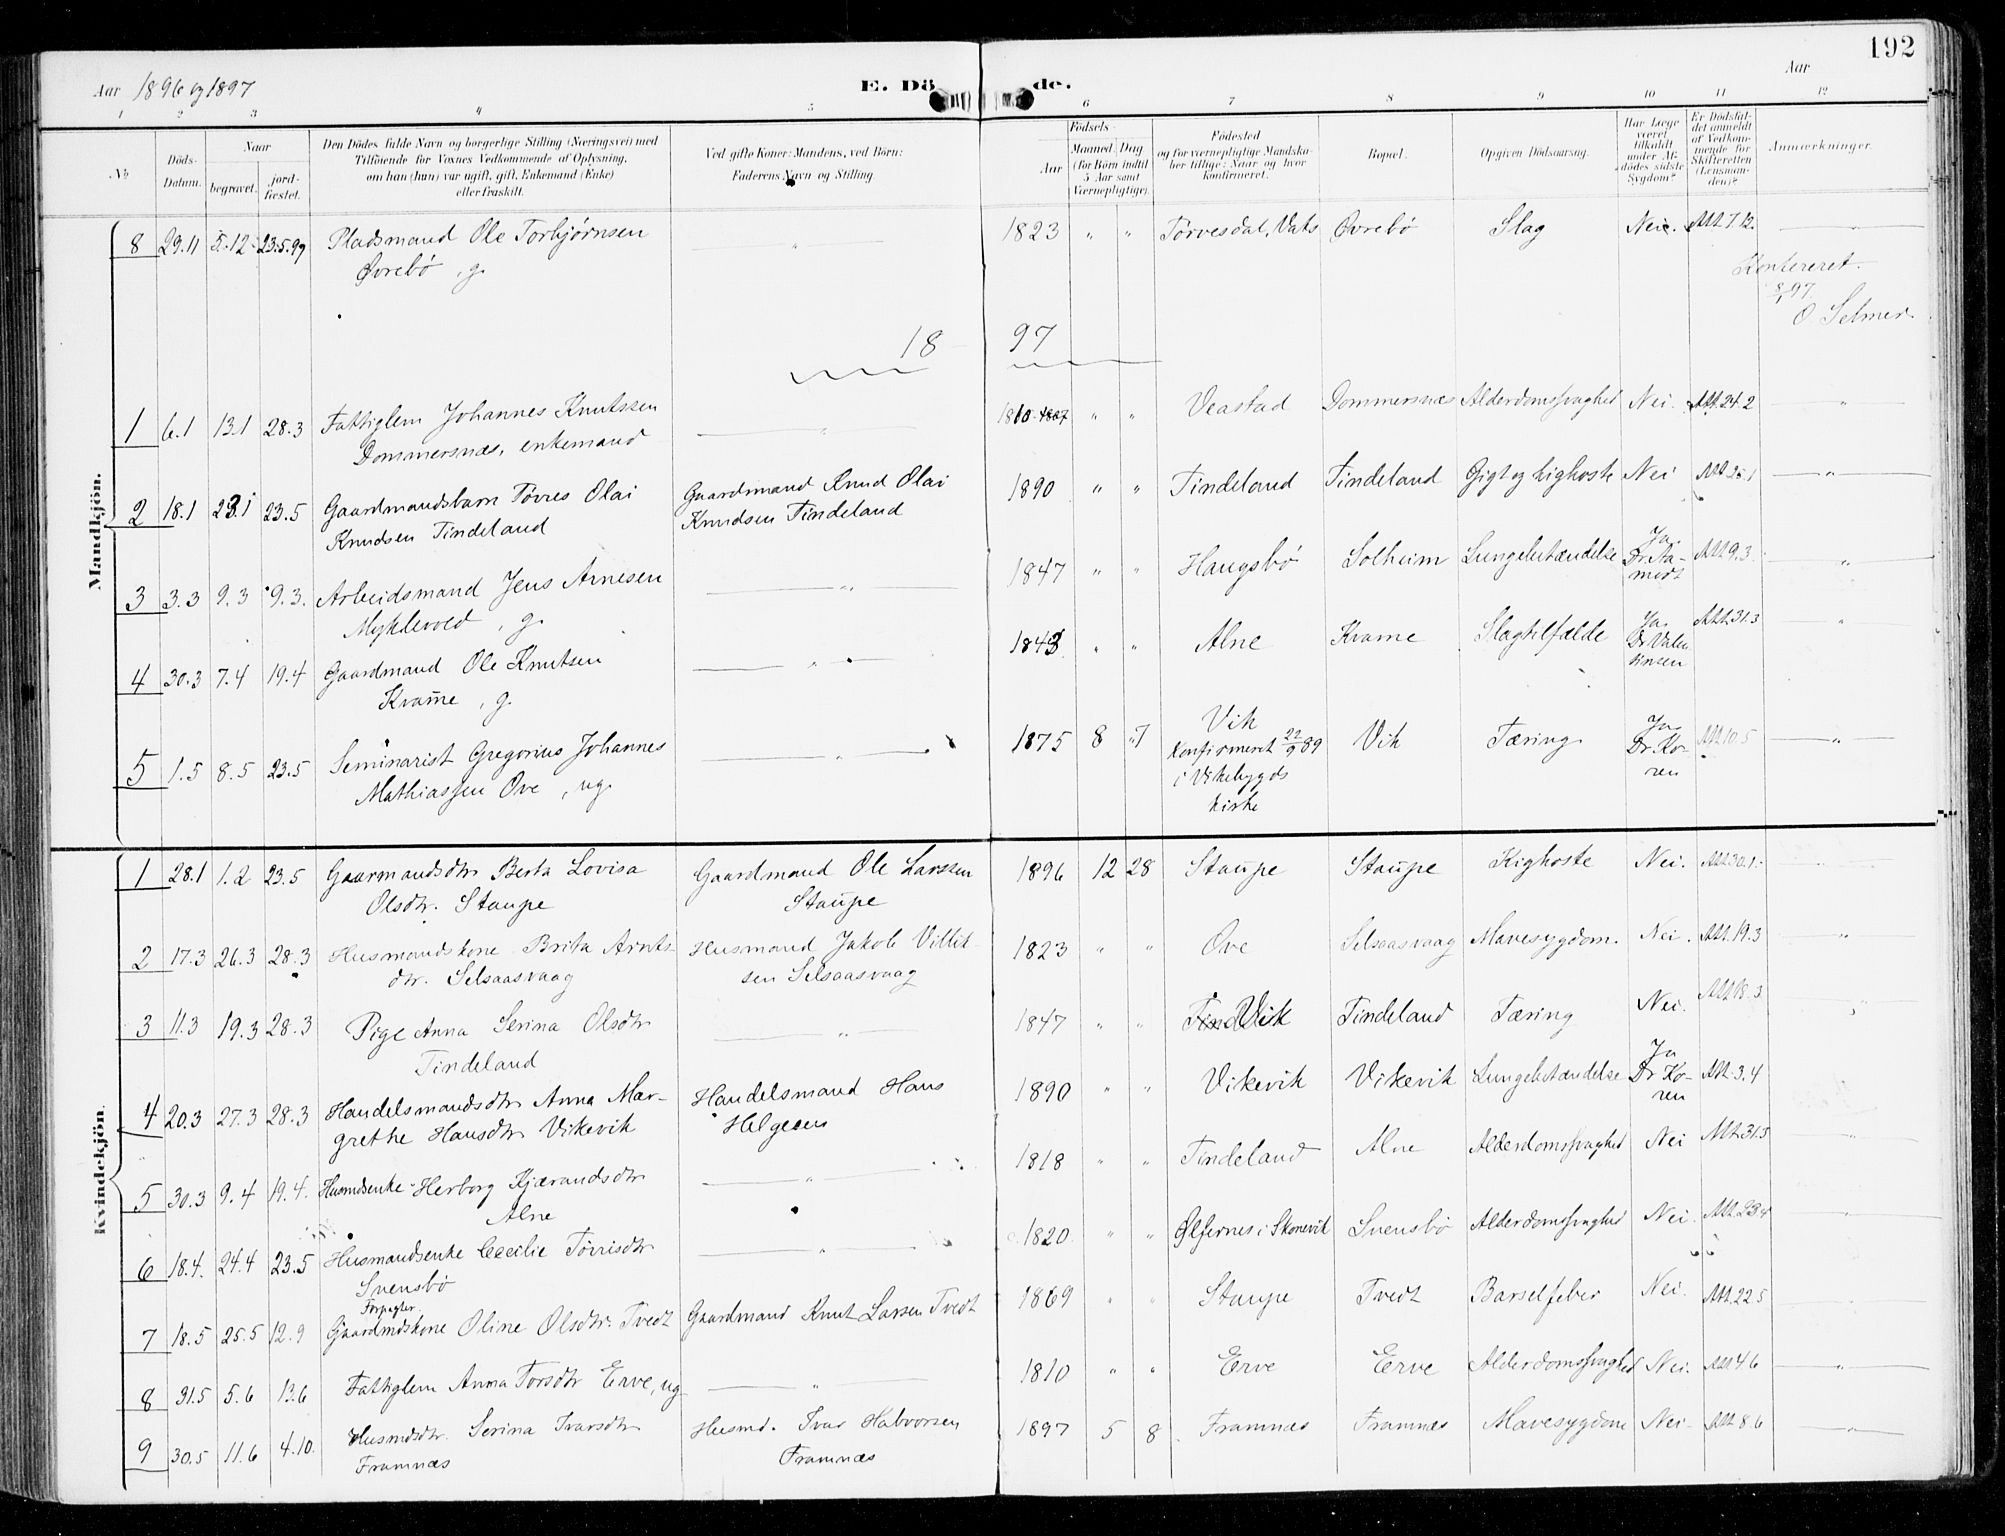 192
Aar 1896 og 1897 E. Dö de. Aar
1 2 3 4 5 6 7 8 9 10 11 12
No
Döds-Datum.
Naar
begravet.
jord-fæstet.
Den Dödes fulde Navn og borgerlige Stilling (Næringsvei) med
Tilföiende for Voxnes Vedkommende af Oplysning,
om han (hun) var ugift, gift, Enkemand (Enke)
eller fraskilt.
Ved gifte Koner: Mandens, ved Börn:
Faderens Navn og Stilling.
Födsels-
Aar
Maaned. Dag.
(for Börn indtil
5 Aar samt
Værnepligtige).
Födested
og for værnepligtige Mandska-
ber tillige: Naar og hvor
konfirmeret.
Bopæl.
Opgiven Dödsaarsag.
Har Læge
været
tilkaldt
under Af-
dödes sidste
Sygdom?
Er Dödsfal-
det anmeldt
af Vedkom-
mende for
Skifteretten
(Lensman-
den)?
Anmærkninger.
Mandkjön.
8 29.11 5.12 23.5.97 Pladsmand Ole Torbjørnsen — " — 1823 " " Tørvesdal, Vats Øvrebø Slag Nei. Att 7.12.
Øvrebø, g.
Konfereret.
8/1 97
O. Selmer
18 97
1 6.1 13.1 28.3 Fattiglem Johannes Knutssen — " — 1810 1807 " " Veastad Dommersnæs Alderdomssvaghed Nei. Att 24.2 "
Dommersnæs, enkemand
2 18.1 23.1 23.5 Gaardmandsbarn Tørres Olai Gaardmand Knud Olai 1890 " " Tindeland Tindeland Gigt og kighoste Nei Att 25.1 "
Knudsen Tindeland Knudsen Tindeland
3 3.3 9.3 9.3. Arbeidsmand Jens Arnesen — " — 1847 " " Haugsbø Solheim Lungebetændelse Ja Att 9.3 "
Myklevold, g. Dr.
4 30.3 7.4 19.4 Gaardmand Ole Knutsen — " — 1843 " " Alne Kvame Slagtilfælde Ja Att 31.3 "
Kvame, g. Dr. Valen
tinsen
5 1.5 8.5 23.5 Seminarist Gregorius Johannes — " — 1875 8 7 Vik Vik Tæring Ja Att 10.5 "
Mathiassen Ove, ug. Konfirmeret 22/9 89 Dr. Ko-
i Vikebygds ren
kirke
Kvindekjön.
1 28.1 1.2 23.5 Gaarmandsdtr Berta Lovisa Gaardmand Ole Larssen 1896 12 28 Staupe Staupe Kighoste Nei. Att 30.1
Olsdtr. Staupe Staupe
2 17.3 26.3 28.3 Husmandskone Brita Arnts- Husmand Jakob Villik- 1823 " " Ove Selsaasvaag Mavesygdom. Nei. Att 19.3 "
dtr. Selsaasvaag sen Selsaasvaag
3 11.3 19.3 28.3 Pige Anna Serina Olsdtr — " — 1847 " " Vik Tindeland Tæring Nei. Att 18.3 "
Tindeland
4 20.3 27.3 28.3 Handelsmandsdtr Anna Mar- Handelsmand Hans 1890 " " Vikevik Vikevik Lungebetændelse Ja Att 3.4
grethe Hansdtr Vikevik Helgesen Dr Ko-
ren
5 30.3 9.4 19.4. Husmdsenke Herborg Kjærandsdtr — " — 1818 " " Tindeland Alne Alderdomssvaghed Nei Att 31.3
Alne
6 18.4. 24.4 23.5 Husmandsenke Cecilie Tørrisdtr — " — 1820 " " Ølfernes i Skonevik Svensbø Alderdomssvaghed Nei. Att 23.4 "
Svensbø
Forpagter.
7 18.5 25.5 12.9 Gaardmdskone Oline Olsdtr. Tvedt Gaardmand Knut Larsen Tvedt 1869 " " Staupe Tvedt Barselfeber Nei. Att 22.5 "
8 31.5 5.6 13.6 Fattiglem Anna Torsdtr Erve, ug — " — 1810 " " Erve Erve Alderdomssvaghed Nei. Att 4.6 "
9 30.5 11.6 4.10. Husmdsdtr. Serina Ivarsdtr Husmd. Ivar Halvorsen 1897 5 8 Framnæs Framnæs Mavesygdom Nei. Att 8.6 "
Framnæs Framnæs